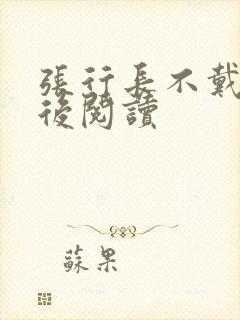 張行長不戴
後閱讀
蘇果